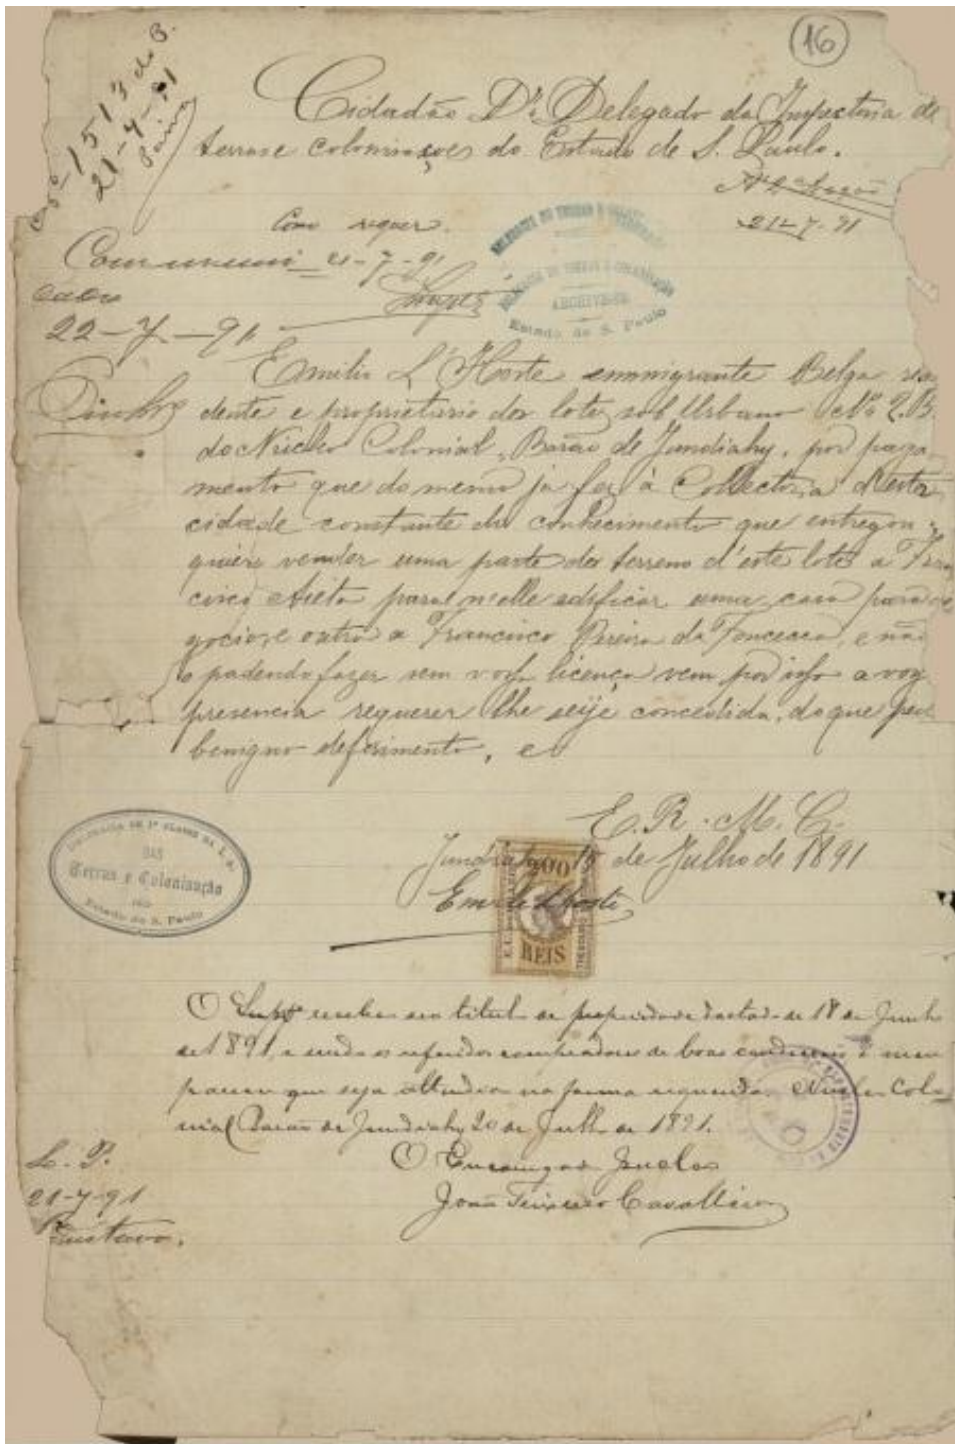 16
Nº 1513 do B.
21-7-91
Cidadão Dr. Delegado da Inspectoria de
terras e colonisações do Estado de S. Paulo.
21-7-91
Como requer.
21-7-91
22-7-91
ARCHIVADO
Estado de S. Paulo
Emilio L'Hoste emmigrante Belga resi
dente e proprietario do lote sub Urbano Nº 2.B.
do Nucleo Colonial, Barão de Jundiahy, por paga
mento que do mesmo já fez à Collectoria d'esta
cidade constante do conhecimento que entregou,
quer vender uma parte do terreno d'este lote a Fran
cisco para n'elle edificar uma casa para ne
gocio, e outra a Francisco Pereira da Fonceca, e não
o podendo fazer sem vossa licença vem por isso a vossa
presencia requerer lhe seije concedida, do que pede
benigno deferimento, e
E. R. M. C.
Jundiahy 19 de Julho de 1891
Emile Lhoste
200
REIS
DAS
Terras e Colonisação
NO
Estado de S. Paulo
O Supte recebeu seu titulo de propriedade datado de 18 de Junho
de 1891, e sendo os referidos compradores de boas condições é meu
parecer que seja attendido na forma requerida. Nucleo Colo-
nial Barão de Jundiahy 20 de Julho de 1891.
O Encarregado
João Teixeira Cavalleiro
L. P.
21-7-91
Gustavo.